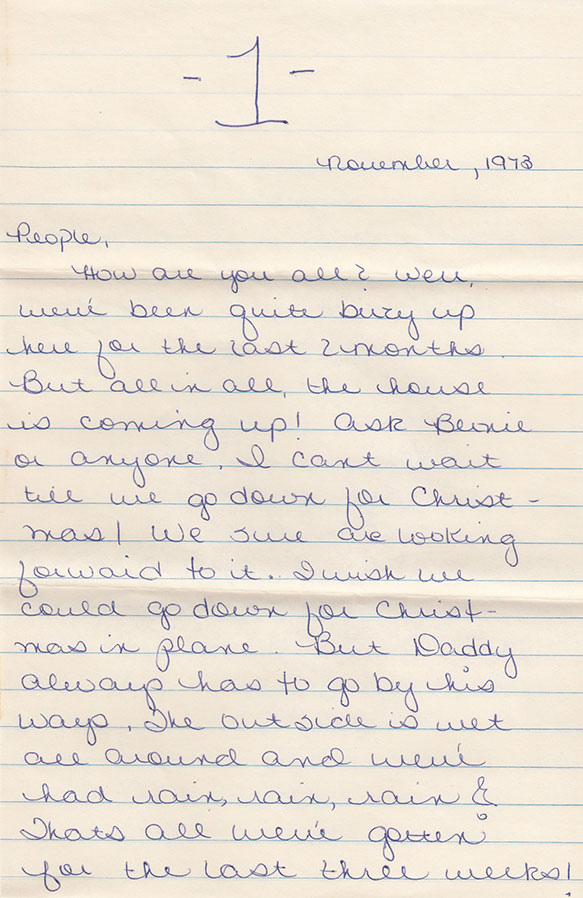 - 1 -
November, 1973
People,
How are you all? Well,
we've been quite busy up
here for the last 2 months.
But all in all, the house
is coming up! Ask Bernie
or anyone. I can't wait
till we go down for Christ-
mas! We sure are looking
forward to it. I wish we
could go down for Christ-
mas in plane. But Daddy
always has to go by his
ways. The outside is wet
all around and we've
had rain, rain, rain &
Thats all we've gotten
for the last three weeks!